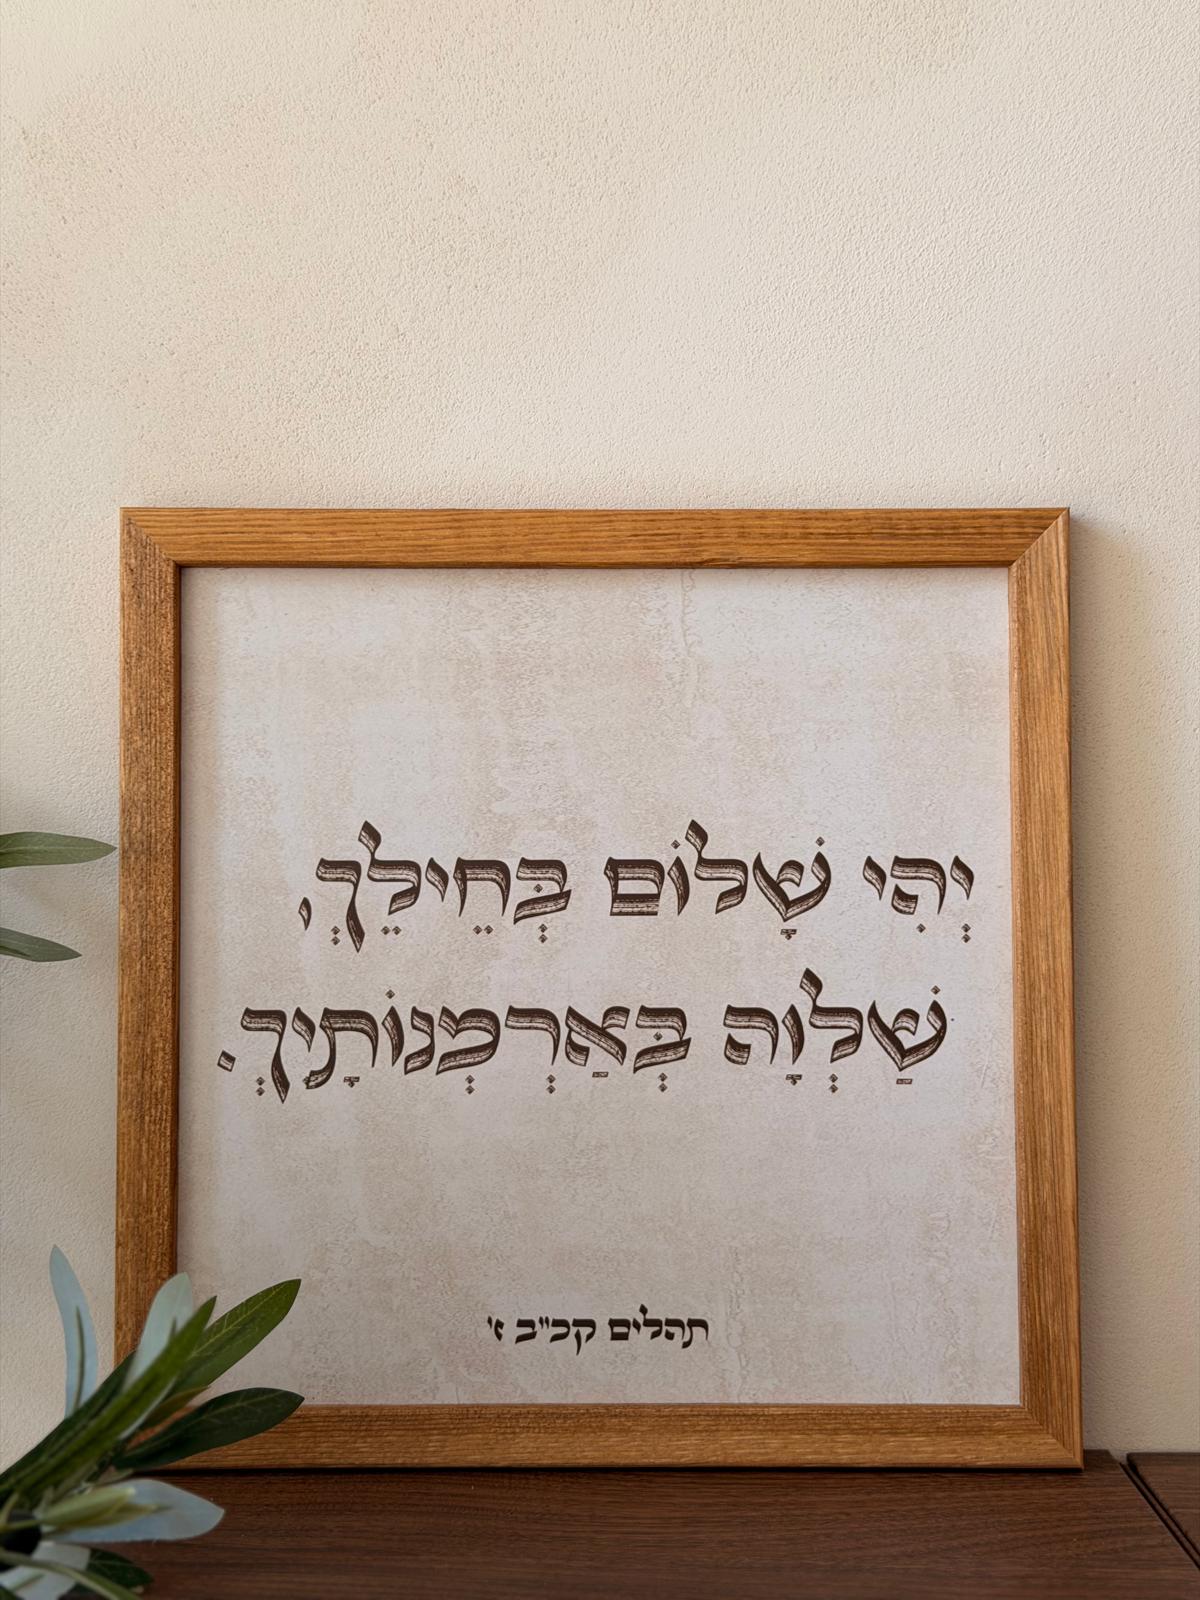 יְהִי שָׁלוֹם בְּחֵילֵךְ,
שַׁלְוָה בְּאַרְמְנוֹתָיִךְ.
תהלים קכ"ב ז'